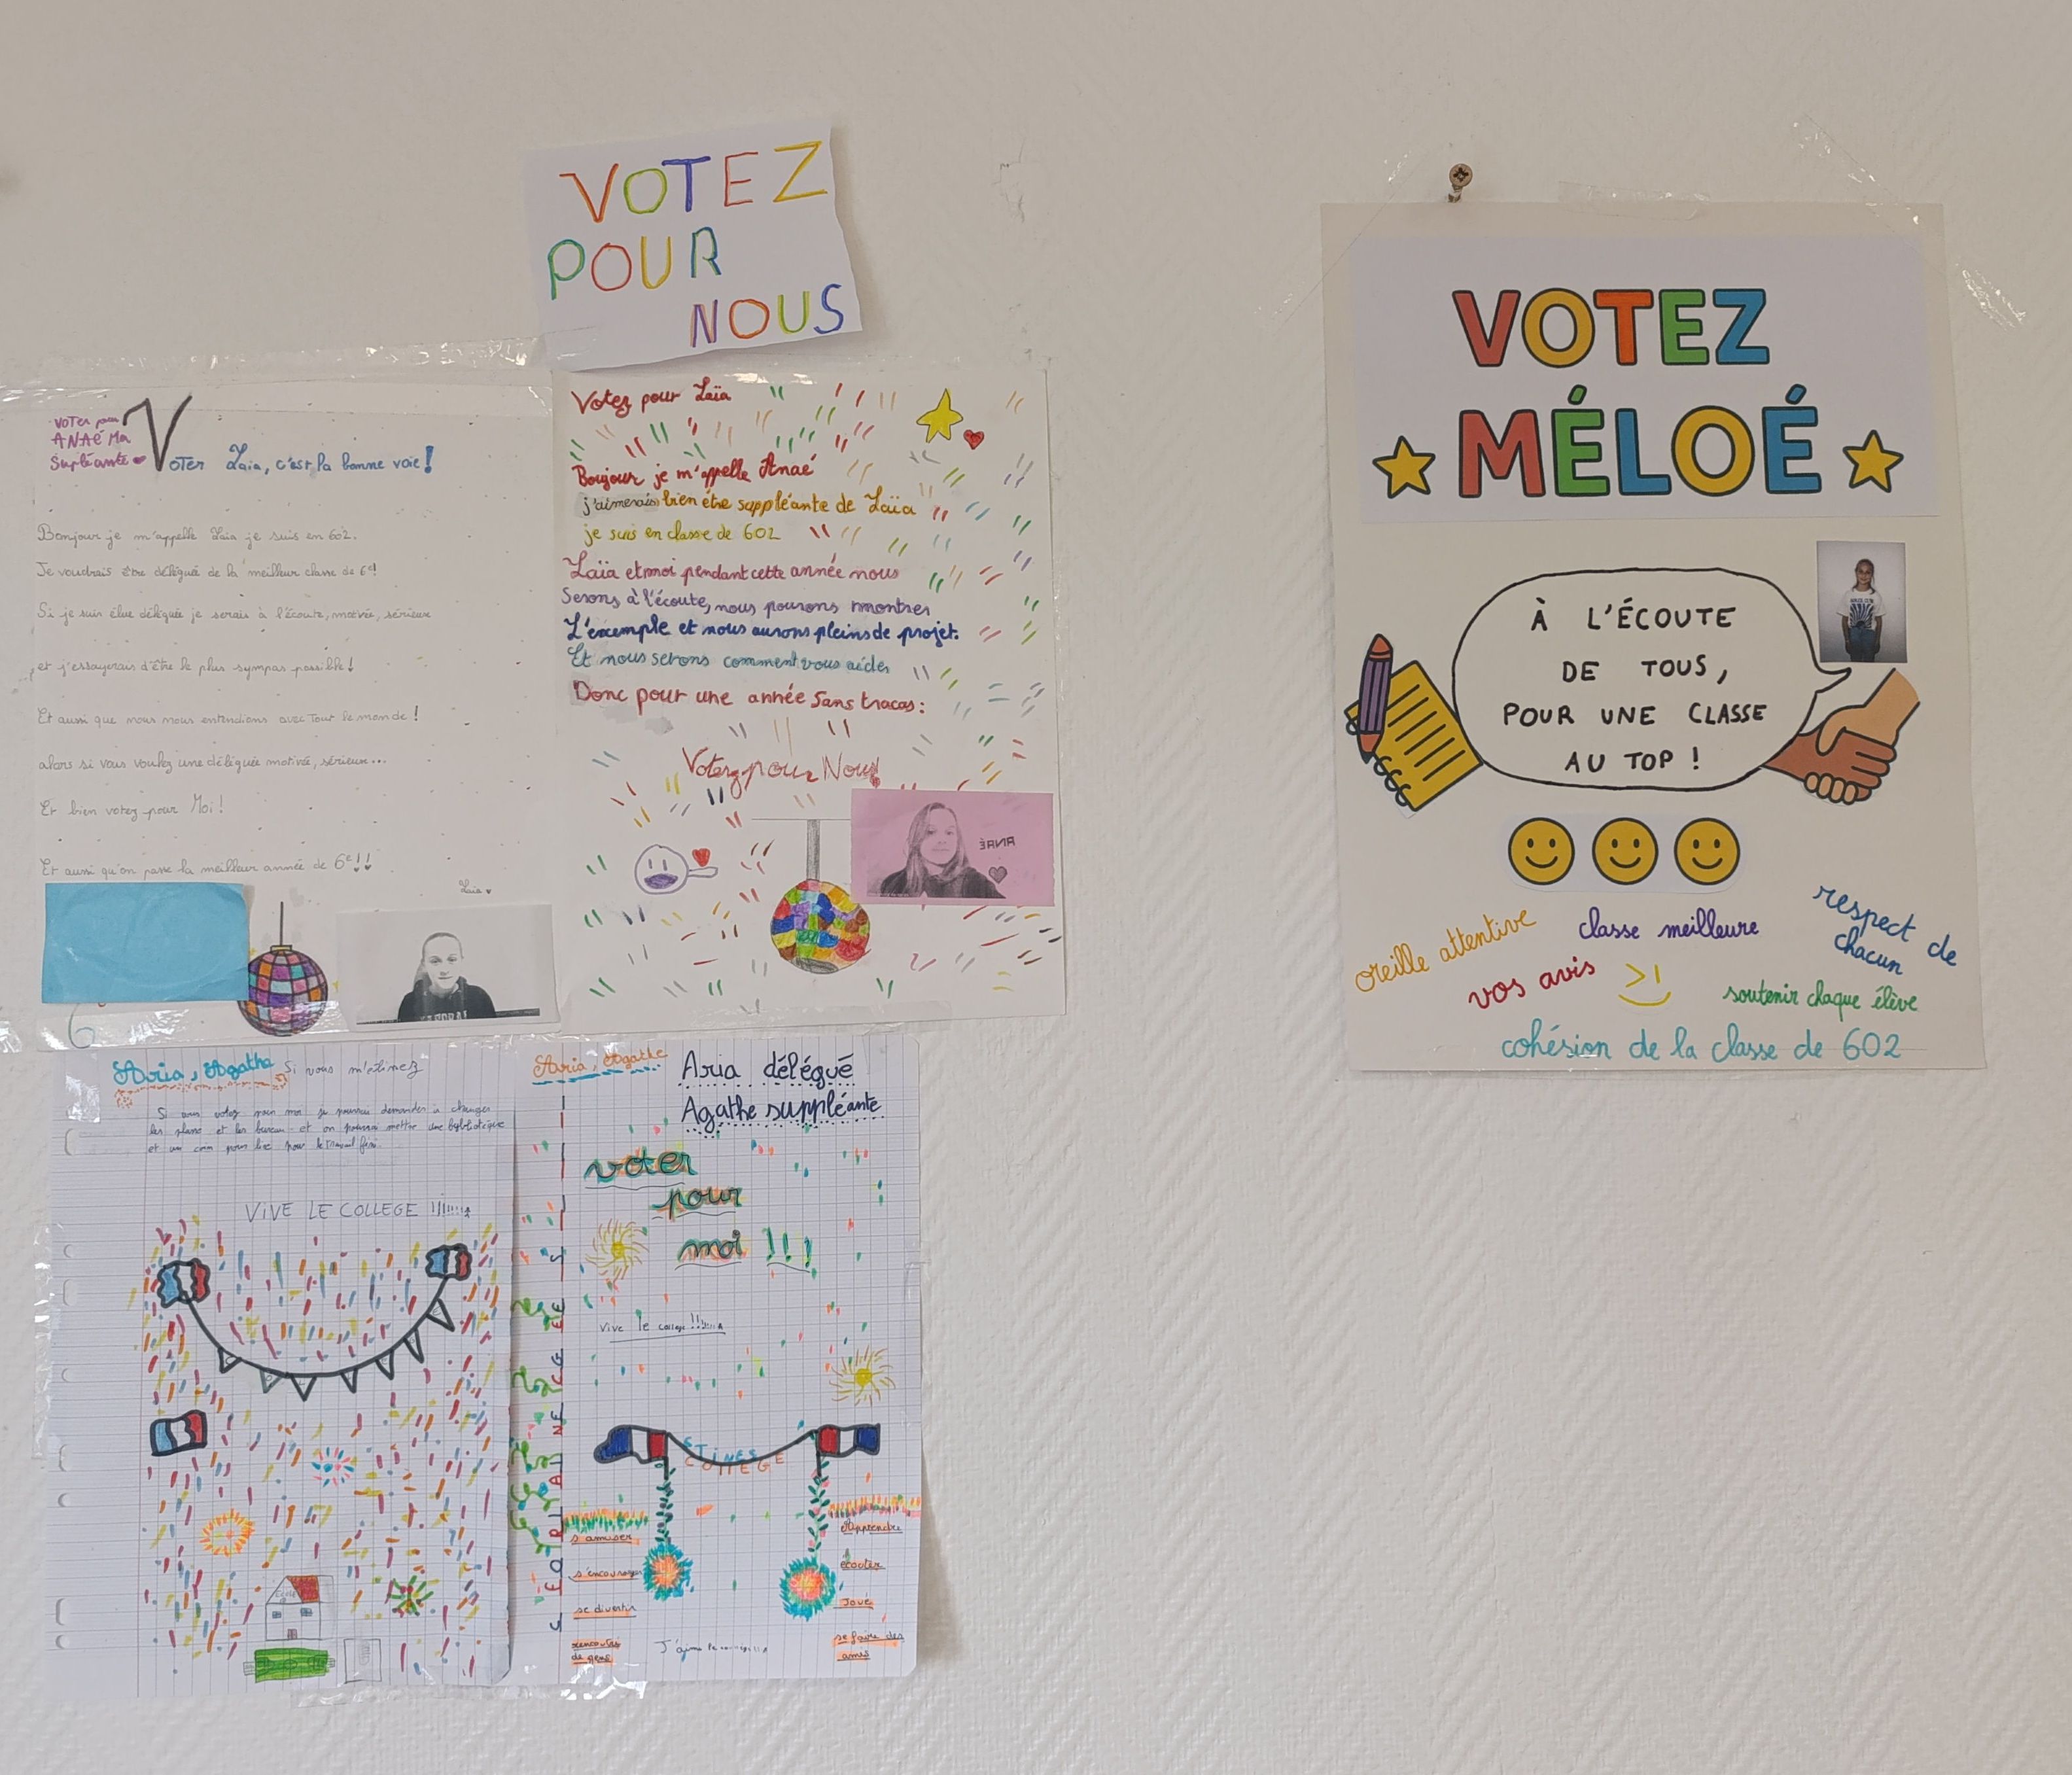 VOTEZ
POUR
NOUS
Voter pour
ANAÉ Ma
Supléante
Voter Laia, c'est la bonne voie!
Bonjour je m'appelle Laia je suis en 602.
Je voudrais être déléguée de la meilleur classe de 6e!
Si je suis élue déléguée je serais à l'écoute, motivée, sérieuse
et j'essayerais d'être le plus sympas possible!
Et aussi que nous nous entendions avec Tout le monde!
alors si vous voulez une déléguée motivée, sérieuse...
Et bien votez pour Moi!
Et aussi qu'on passe la meilleur année de 6e!!
Laia
6
Votez pour Laïa
Bonjour je m'appelle Anaé
j'aimerais bien être suppléante de Laïa
je suis en classe de 602
Laïa et moi pendant cette année nous
Serons à l'écoute, nous pourons montrer
L'exemple et nous aurons pleins de projet.
Et nous serons comment vous aider
Donc pour une année sans tracas:
Votez pour Nous!
ANAÉ
Aria, Agatha Si vous
Si vous votez pour moi je pourrai demander à changer
les plans et les bureau et on pourrai mettre une
et un coin pour lire pour le travail fini.
VIVE LE COLLEGE !!!!!!!!
Aria, Agathe
Aria délégué
Agathe suppléante
voter
pour
moi !!!
Vive le college !!!!!!
COLLEGE
s'amuser
s'encourager
se divertir
de gens
J'aime le
Apprendre
écouter
Joué
se faire des
amis
VOTEZ
MÉLOÉ
À L'ÉCOUTE
DE TOUS,
POUR UNE CLASSE
AU TOP !
oreille attentive
classe meilleure
respect de
chacun
vos avis
soutenir chaque élève
cohésion de la classe de 602